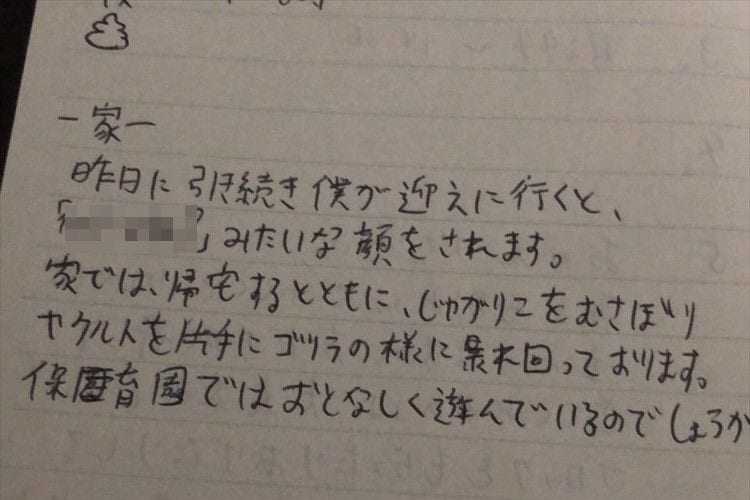 ー家ー
昨日に引き続き僕が迎えに行くと、
「」みたいな顔をされます。
家では、帰宅するとともに、じゃがりこをむさぼり
ヤクルトを片手にゴジラの様に暴れ回っております。
保育園ではおとなしく遊んでいるのでしょうか